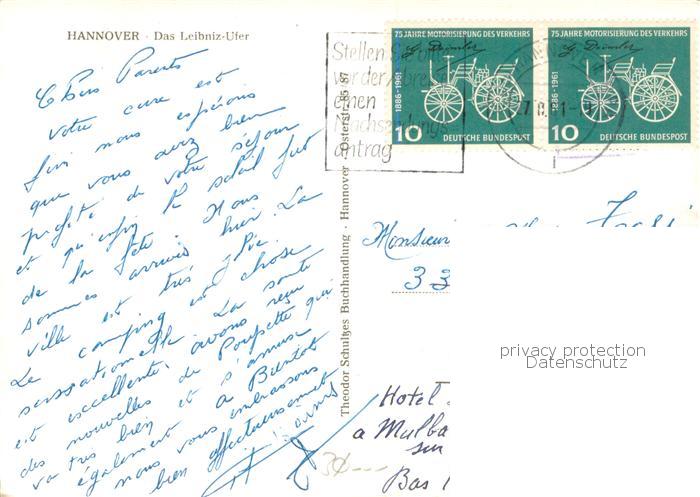 HANNOVER · Das Leibniz-Ufer
Chers Parents
votre cure est
fini nous espérions
que vous avez bien
profité de votre séjour
et qu'enfin le soleil fut
de la fête. Nous
sommes arrivés hier. La
ville est très jolie.
Le camping est chose
sensationnelle. La santé
est excellente, avons reçu
des nouvelles de Poupette qui
va très bien et s'amuse
également à Bientôt
nous vous embrassons
bien affectueusement
Theodor Schulzes Buchhandlung · Hannover · Osterstr. 85/87
Stellen Sie
vor der Abreise
einen
Nachsendungs-
antrag
75 JAHRE MOTORISIERUNG DES VERKEHRS
G. Daimler
1886-1961
10
DEUTSCHE BUNDESPOST
75 JAHRE MOTORISIERUNG DES VERKEHRS
G. Daimler
1886-1961
10
DEUTSCHE BUNDESPOST
Monsieur
33
privacy protection
Datenschutz
Hotel
a Mulba
sur
Bas